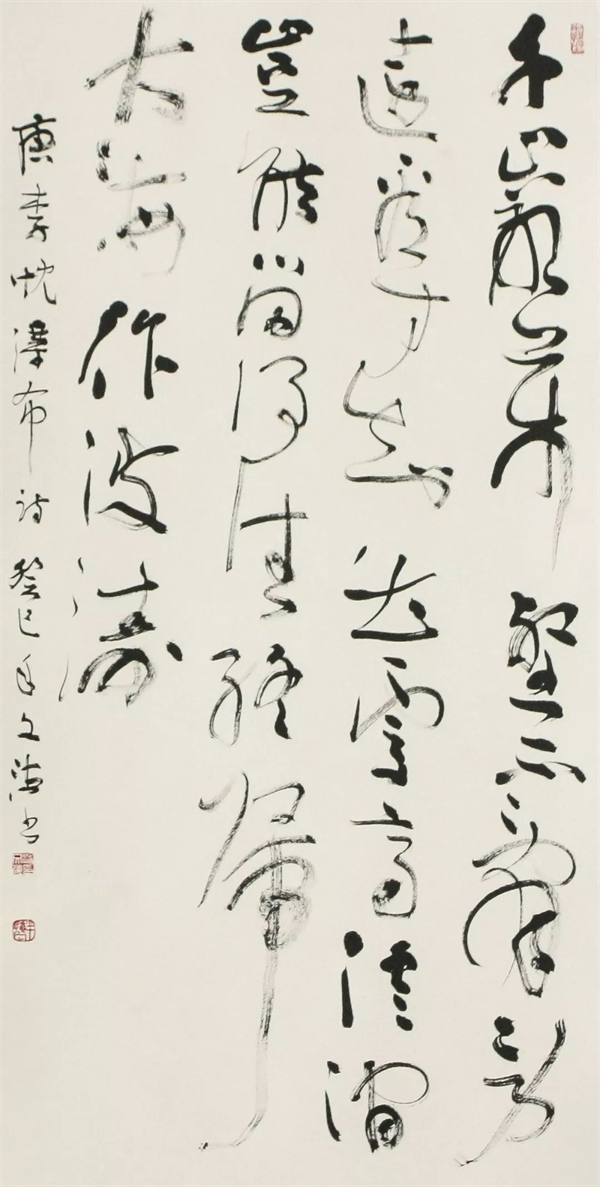 千巖萬壑不辭勞
遠看方知出處高溪澗
豈能留得住終歸
大海作波濤
唐李忱瀑布詩 癸巳年文書